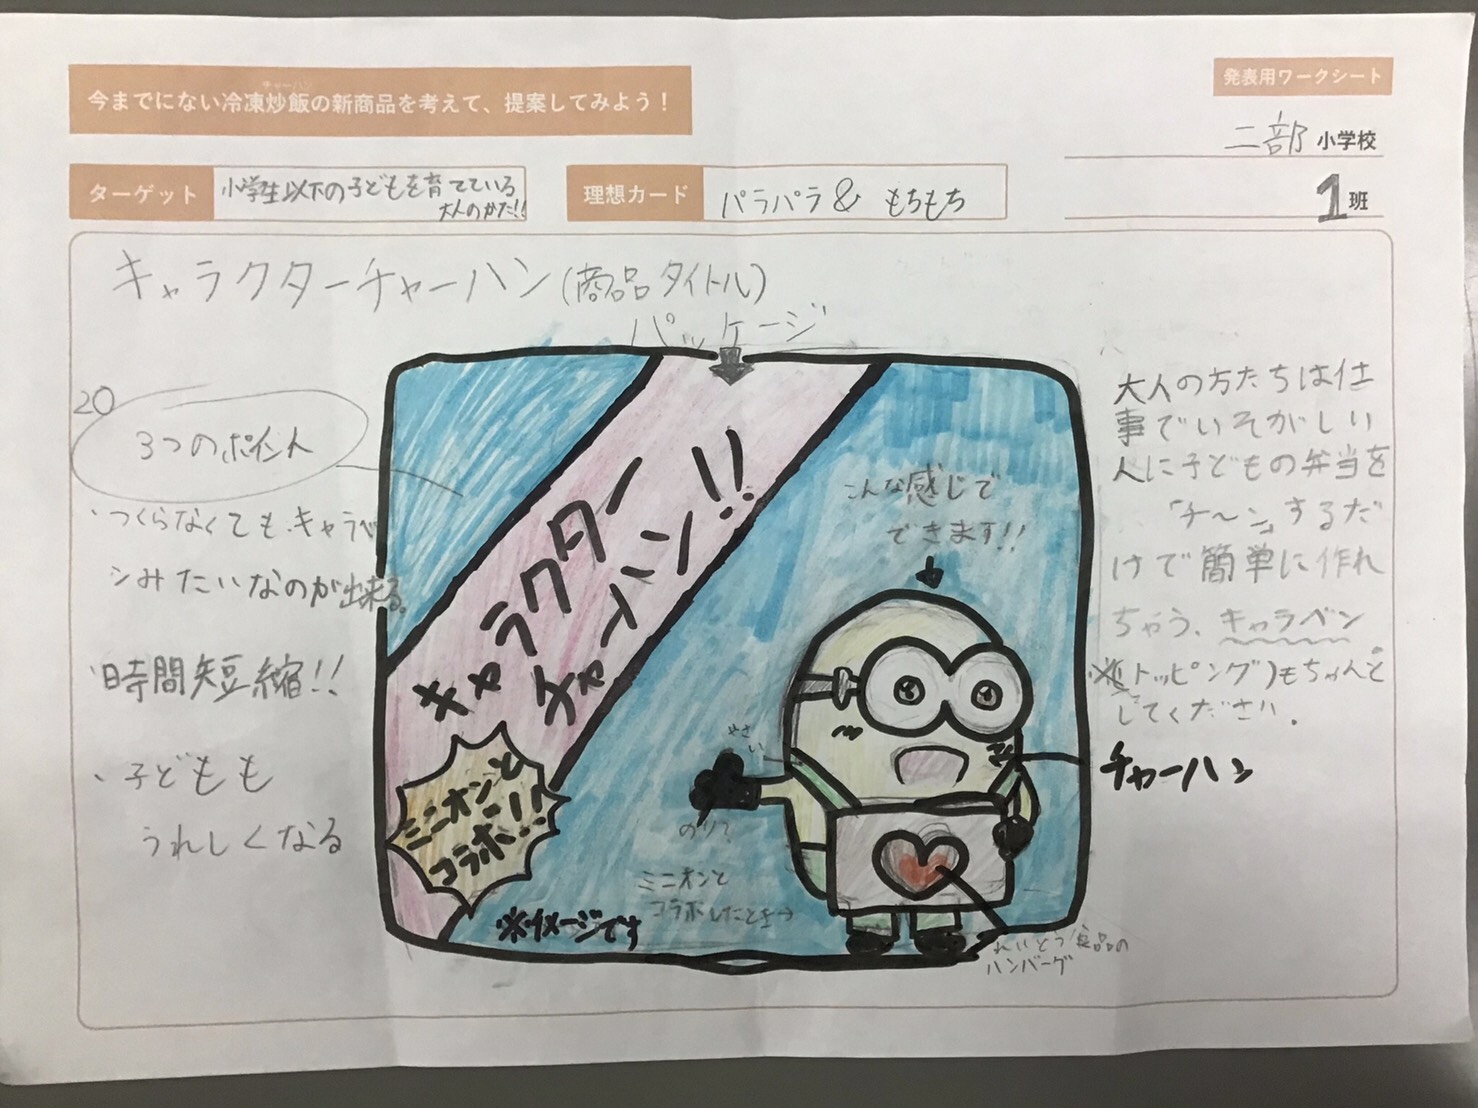 発表用ワークシート
今までにない冷凍炒飯の新商品を考えて、提案してみよう！
チャーハン
二部 小学校
ターゲット
小学生以下の子どもを育てている
大人のかた!!
理想カード
パラパラ& もちもち
1班
キャラクターチャーハン(商品タイトル)
パッケージ
20
3つのポイント
・つくらなくても、キャラベ
ンみたいなのが出来る。
・時間短縮!!
・子どもも
うれしくなる
キャラクター
チャーハン!!
ミニオンと
コラボ!!
※イメージです
こんな感じで
できます!!
やさい
のり?
ミニオンと
コラボしたとき→
大人の方たちは仕
事でいそがしい
人に子どもの弁当を
「チ〜ン」するだ
けで簡単に作れ
ちゃう、キャラベン
トッピング)もちゃんと
してください.
チャーハン
れいとう食品の
ハンバーグ